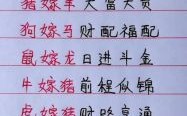 猪嫁羊大富大贵
狗嫁马财配福配
鼠嫁龙日进斗金
牛嫁猪前程似锦
虎嫁猪财路亨通